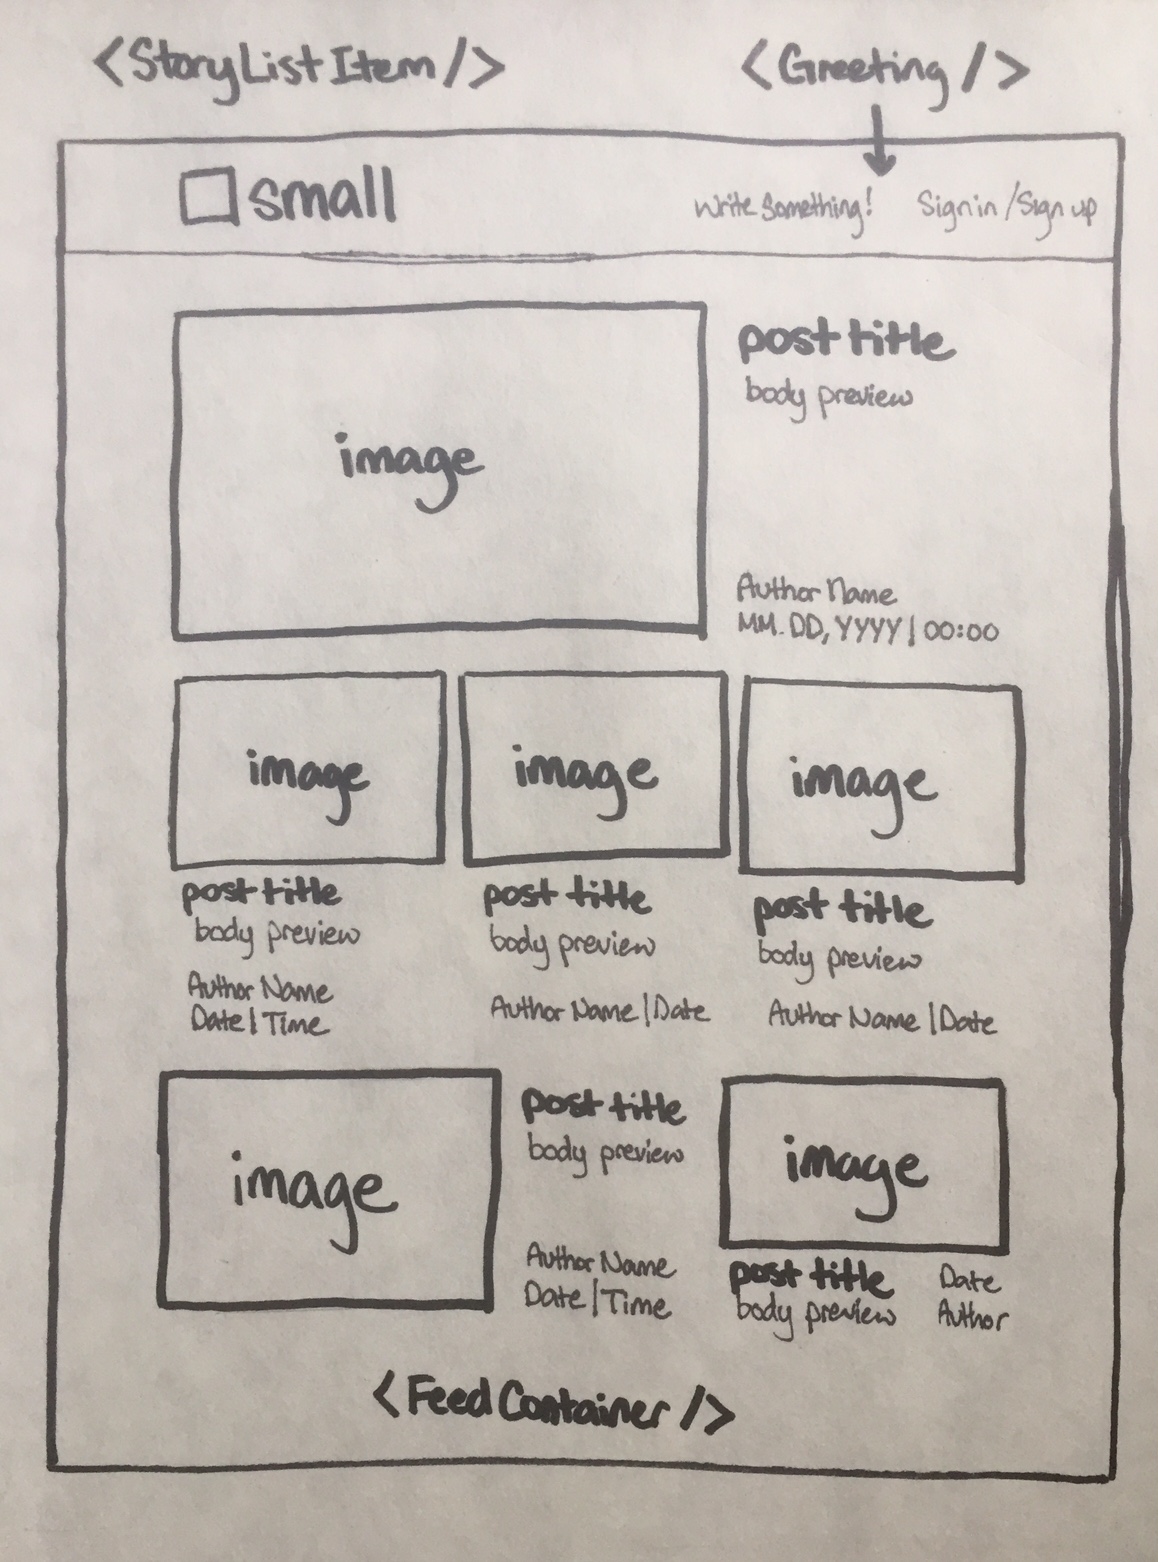 <StoryListItem/>
<Greeting/>
small
Write Something!
Sign in/Sign up
image
post title
body preview
Author Name
MM.DD,YYYY|00:00
image
image
image
post title
body preview
Author Name
Date|Time
post title
body preview
Author Name|Date
post title
body preview
Author Name|Date
image
post title
body preview
Author Name
Date|Time
image
post title
body preview
Date
Author
<FeedContainer/>